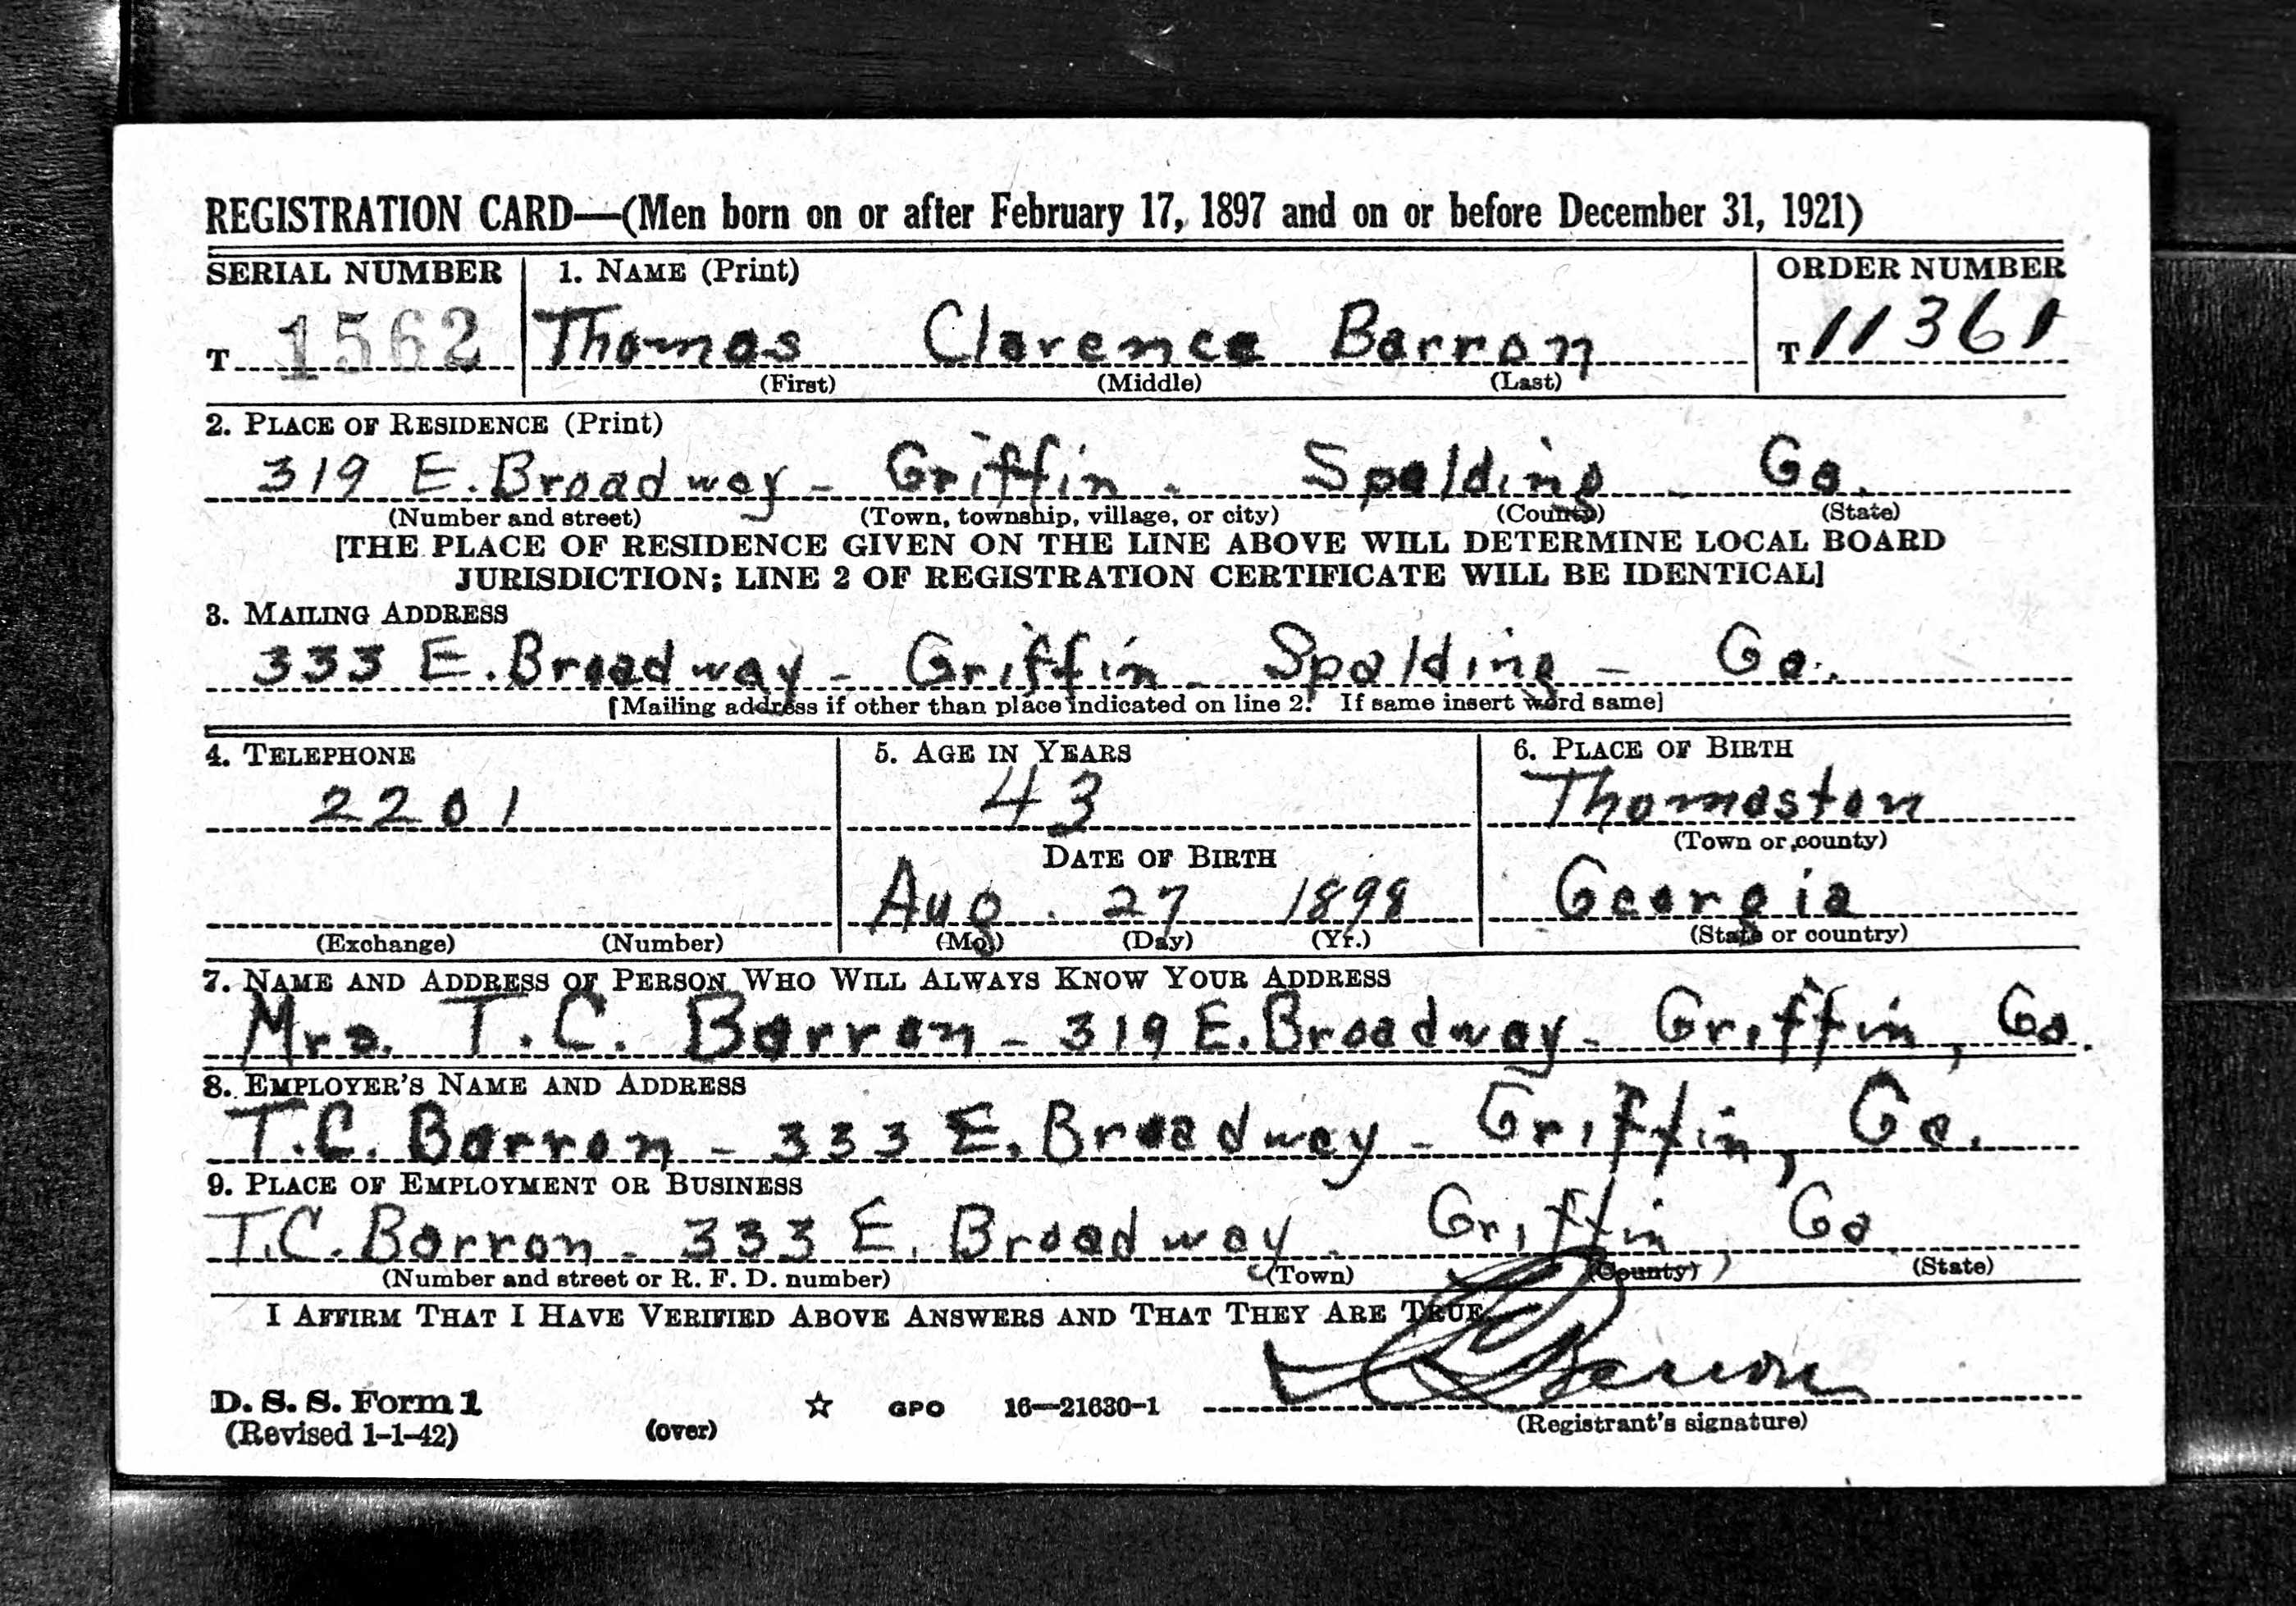 REGISTRATION CARD—(Men born on or after February 17, 1897 and on or before December 31, 1921)
SERIAL NUMBER 1. NAME (Print) ORDER NUMBER
T 1562 Thomas Clarence Barron T 11361
(First) (Middle) (Last)
2. PLACE OF RESIDENCE (Print)
319 E. Broadway - Griffin - Spalding - Ga.
(Number and street) (Town, township, village, or city) (County) (State)
[THE PLACE OF RESIDENCE GIVEN ON THE LINE ABOVE WILL DETERMINE LOCAL BOARD
JURISDICTION; LINE 2 OF REGISTRATION CERTIFICATE WILL BE IDENTICAL]
3. MAILING ADDRESS
333 E. Broadway - Griffin - Spalding - Ga.
[Mailing address if other than place indicated on line 2. If same insert word same]
4. TELEPHONE 5. AGE IN YEARS 6. PLACE OF BIRTH
2201 43 Thomaston
(Town or county)
DATE OF BIRTH
Aug. 27 1898 Georgia
(Exchange) (Number) (Mo.) (Day) (Yr.) (State or country)
7. NAME AND ADDRESS OF PERSON WHO WILL ALWAYS KNOW YOUR ADDRESS
Mrs. T. C. Barron - 319 E. Broadway - Griffin, Ga.
8. EMPLOYER'S NAME AND ADDRESS
T. C. Barron - 333 E. Broadway - Griffin, Ga.
9. PLACE OF EMPLOYMENT OR BUSINESS
T. C. Barron - 333 E. Broadway - Griffin, Ga
(Number and street or R. F. D. number) (Town) (County) (State)
I AFFIRM THAT I HAVE VERIFIED ABOVE ANSWERS AND THAT THEY ARE TRUE.
T C Barron
D. S. S. Form 1
(Revised 1-1-42) (over) ☆ GPO 16—21630-1 (Registrant's signature)